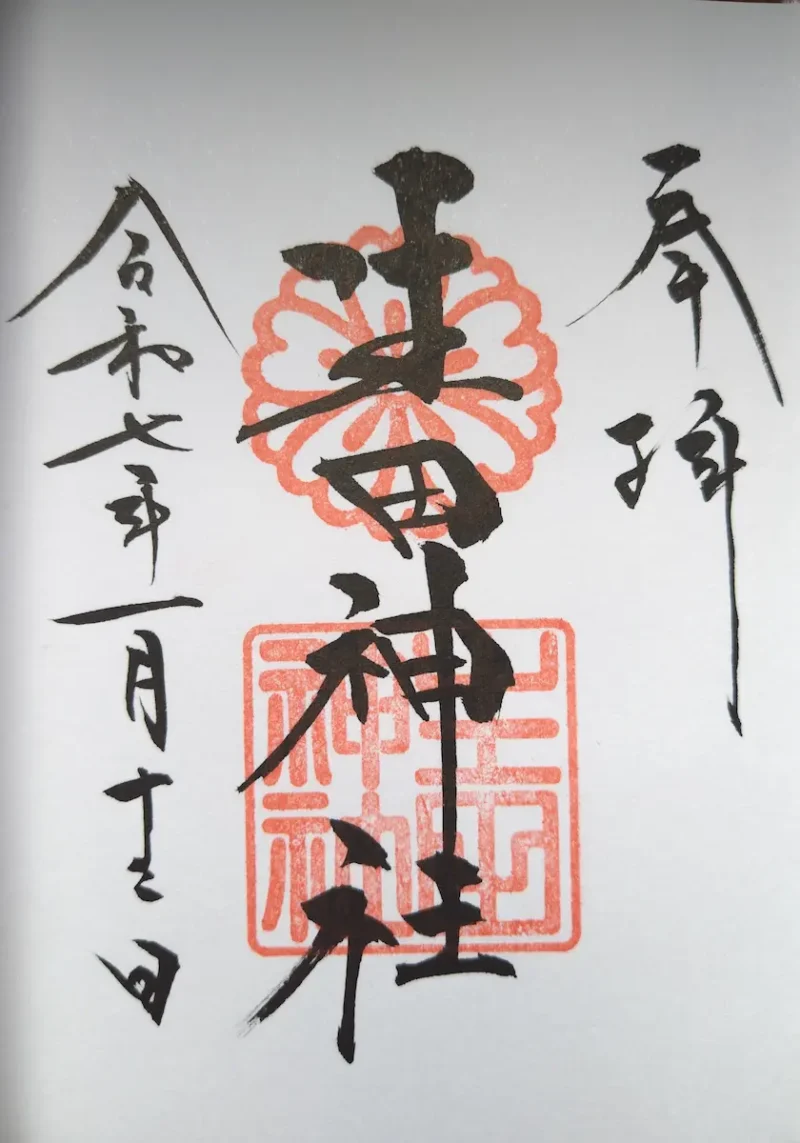 奉拝
走田神社
令和七年一月十三日